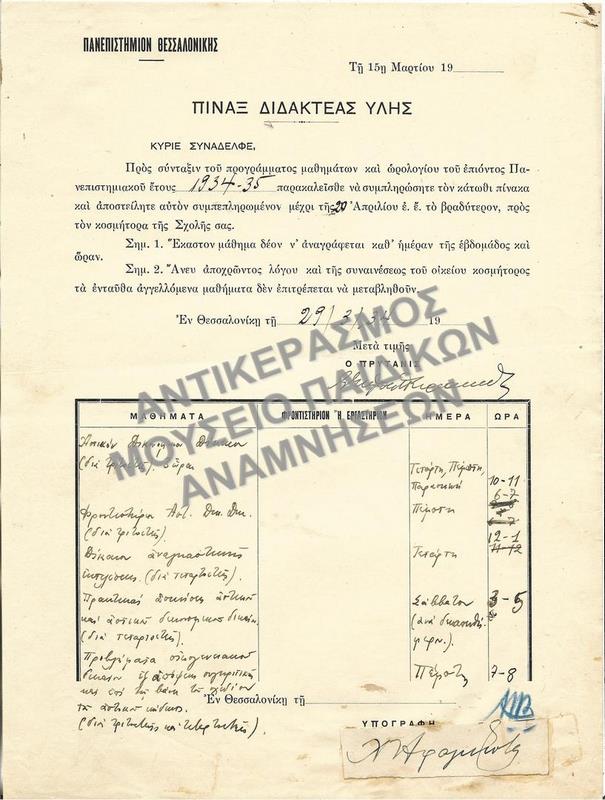 ΠΑΝΕΠΙΣΤΗΜΙΟΝ ΘΕΣΣΑΛΟΝΙΚΗΣ
Τῇ 15ῃ Μαρτίου 19
ΠΙΝΑΞ ΔΙΔΑΚΤΕΑΣ ΥΛΗΣ
ΚΥΡΙΕ ΣΥΝΑΔΕΛΦΕ,
Πρὸς σύνταξιν τοῦ προγράμματος μαθημάτων καὶ ὡρολογίου τοῦ ἐπιόντος Πα-
νεπιστημιακοῦ ἔτους 1934-35 παρακαλεῖσθε νὰ συμπληρώσητε τὸν κάτωθι πίνακα
καὶ ἀποστείλητε αὐτὸν συμπεπληρωμένον μέχρι τῆς 20 Ἀπριλίου ἐ. ἔ. τὸ βραδύτερον, πρὸς
τὸν κοσμήτορα τῆς Σχολῆς σας.
Σημ. 1. Ἕκαστον μάθημα δέον ν' ἀναγράφεται καθ' ἡμέραν τῆς ἑβδομάδος καὶ
ὥραν.
Σημ. 2. Ἄνευ ἀποχρῶντος λόγου καὶ τῆς συναινέσεως τοῦ οἰκείου κοσμήτορος
τὰ ἐνταῦθα ἀγγελλόμενα μαθήματα δὲν ἐπιτρέπεται νὰ μεταβληθοῦν.
Ἐν Θεσσαλονίκῃ τῇ 29/3/34 19
Μετὰ τιμῆς
Ο ΠΡΥΤΑΝΙΣ
ΑΝΤΙΚΕΡΑΣΜΟΣ
ΜΟΥΣΕΙΟ ΠΑΙΔΙΚΩΝ
ΑΝΑΜΝΗΣΕΩΝ
ΜΑΘΗΜΑΤΑ ΦΡΟΝΤΙΣΤΗΡΙΟΝ Ἢ ΕΡΓΑΣΤΗΡΙΟΝ ΗΜΕΡΑ ΩΡΑ
(διὰ τριτοετεῖς).
Τετάρτη, Πέμπτη,
Παρασκευὴ 10-11
6-7
Φροντιστήριον Ἀστ. Δικ. Δικ. Πέμπτη
(διὰ τριτοετεῖς).
12-1
Δίκαιον ἀναγκαστικῆς Τετάρτη 11-12
ἐκτελέσεως. (διὰ τεταρτοετεῖς).
Πρακτικαὶ ἀσκήσεις ἀστικοῦ Σάββατον 3-5
καὶ ἀστικοῦ δικονομικοῦ δικαίου
(διὰ τεταρτοετεῖς).
Προβλήματα οἰκογενειακοῦ Πέμπτη 7-8
δικαίου ἐξ ἀπόψεως συγκριτικῆς
καὶ ἐπὶ τῇ βάσει τοῦ σχεδίου
τοῦ ἀστικοῦ κώδικος.
(διὰ τριτοετεῖς καὶ τεταρτοετεῖς).
Ἐν Θεσσαλονίκῃ τῇ
ΥΠΟΓΡΑΦΗ